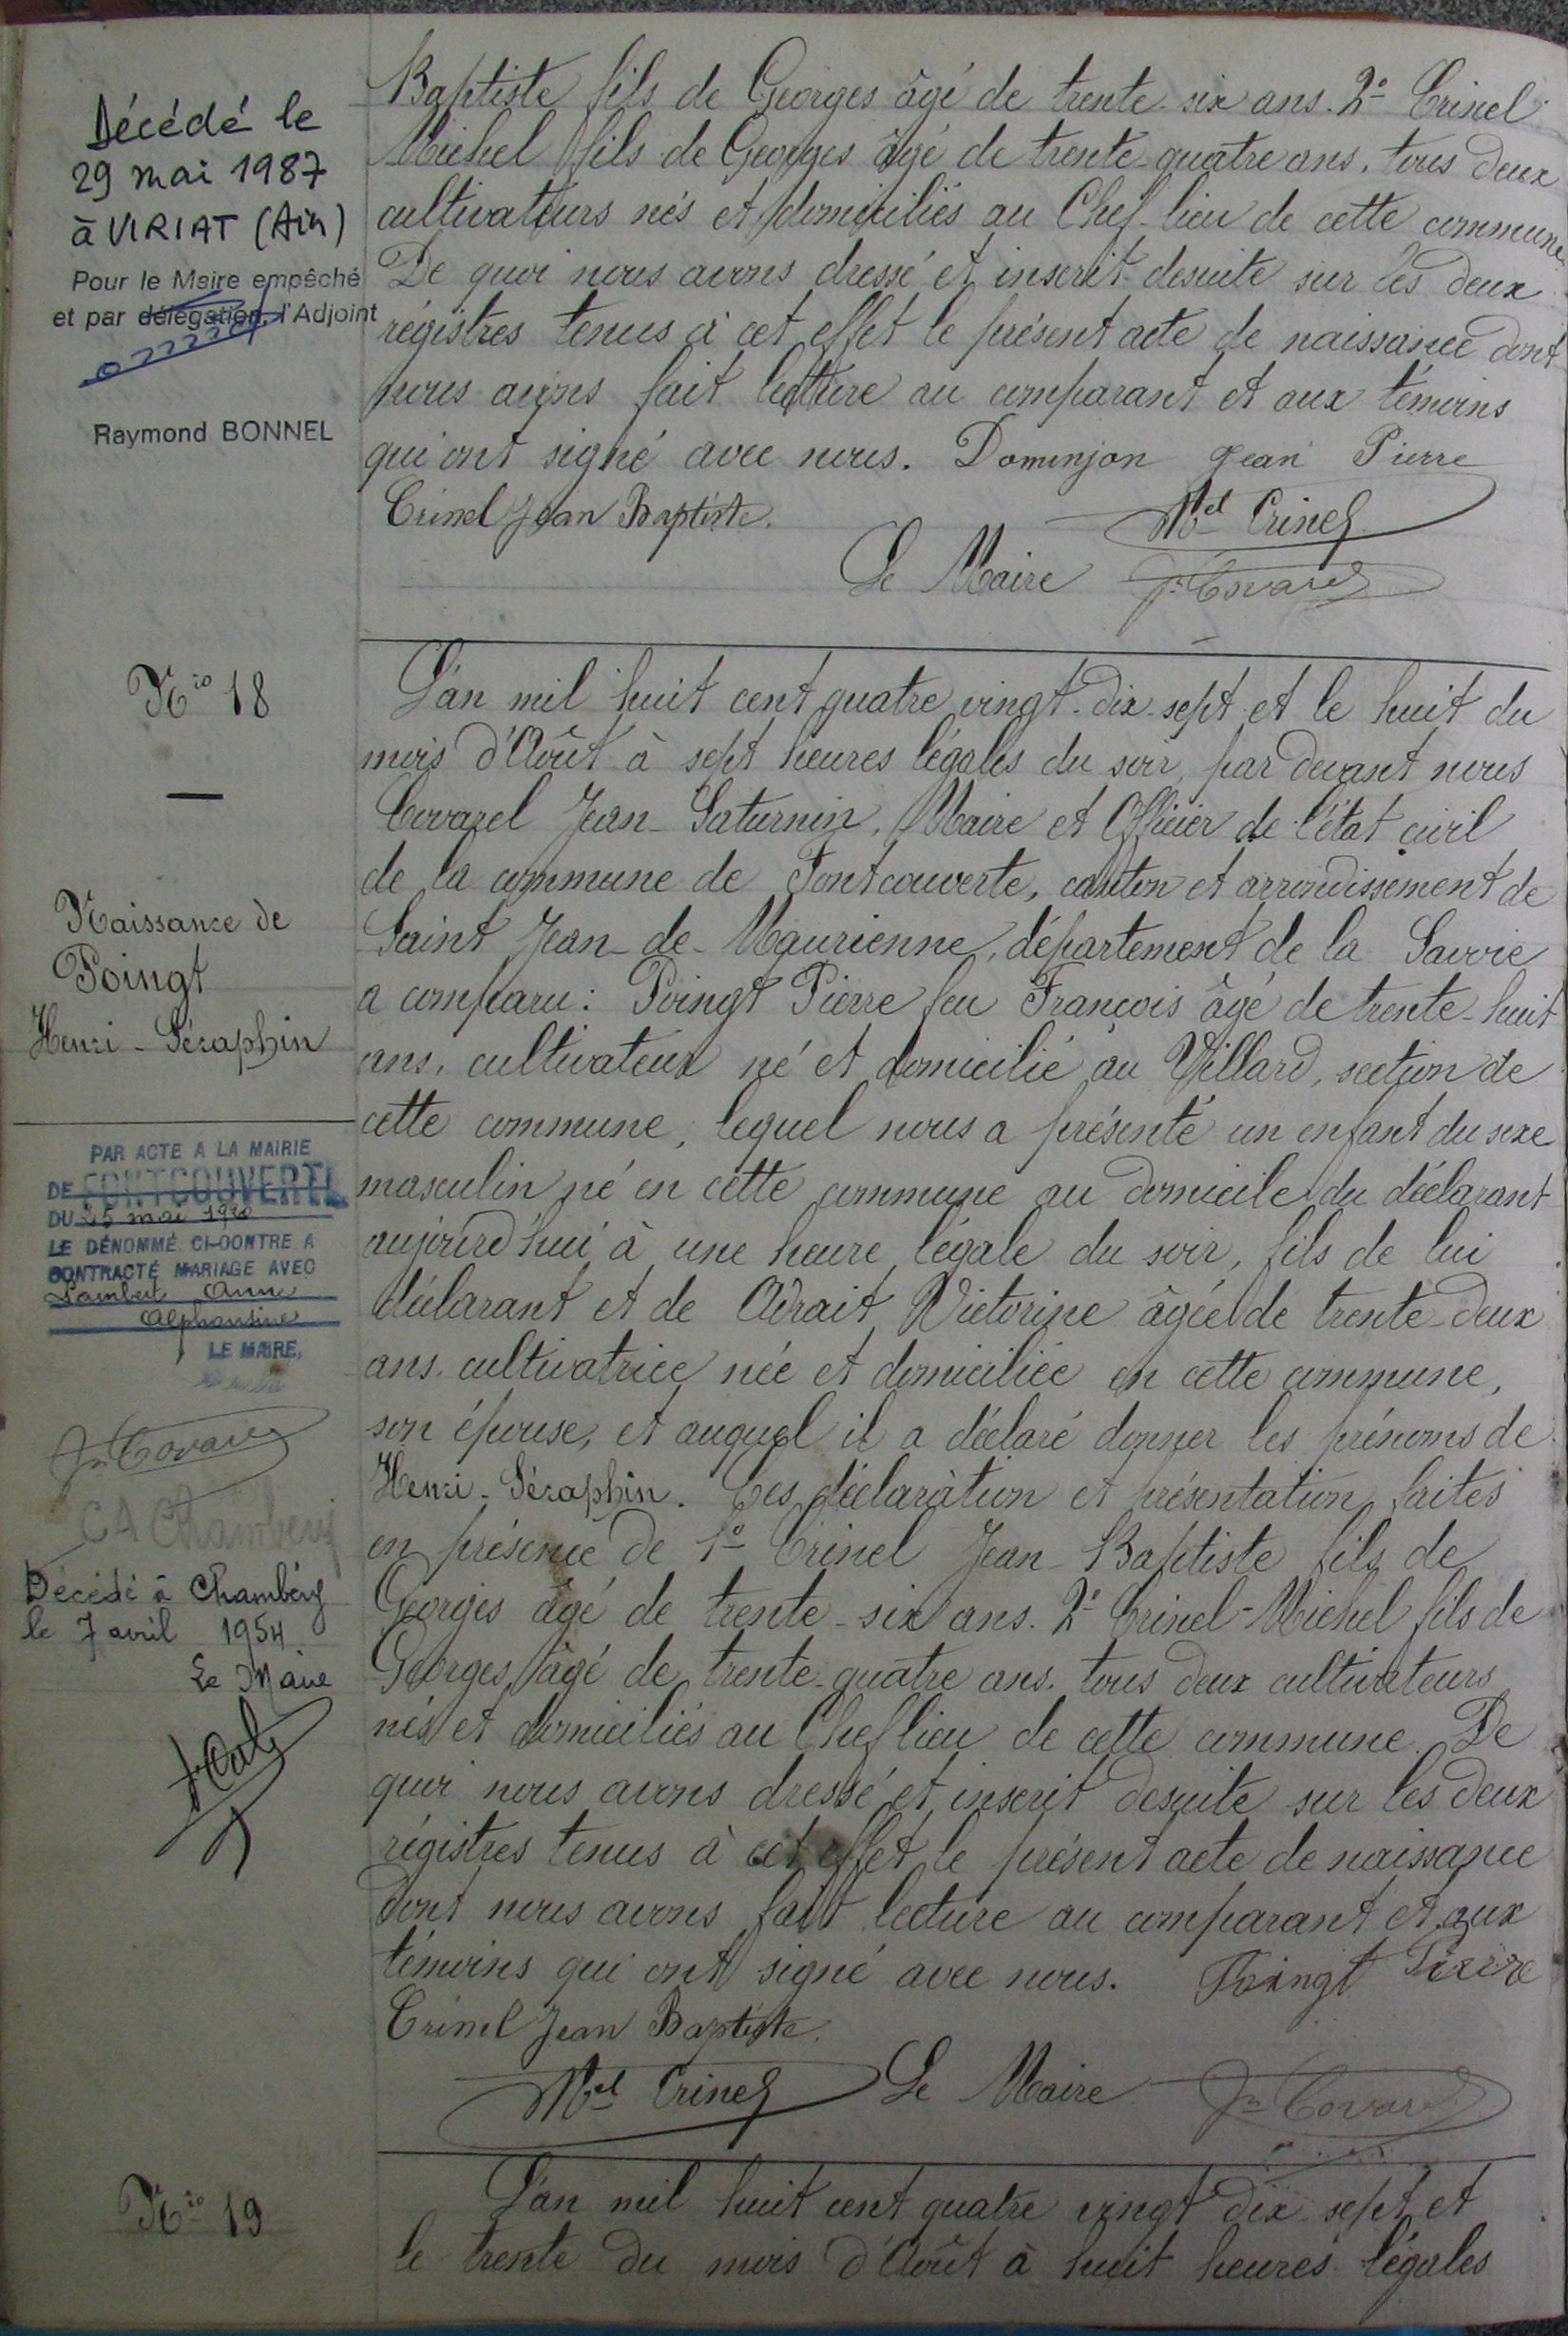 Décédé le
29 mai 1987
à VIRIAT (Ain)
Pour le Maire empêché
et par délégation, l'Adjoint
Raymond BONNEL
Baptiste fils de Georges âgé de trente-six ans. 2º Crinel
Michel fils de Georges âgé de trente-quatre ans, tous deux
cultivateurs nés et domiciliés au Chef-lieu de cette commune.
De quoi nous avons dressé et inscrit desuite sur les deux
régistres tenus à cet effet le présent acte de naissance dont
nous avons fait lecture au comparant et aux témoins
qui ont signé avec nous. Dominjon Jean Pierre
Crinel Jean Baptiste. Mel Crinel
Le Maire Jn Covarel
Nro 18
Naissance de
Poingt
Henri-Séraphin
L'an mil huit cent quatre vingt-dix-sept et le huit du
mois d'Août à sept heures légales du soir, par devant nous
Covarel Jean-Saturnin, Maire et Officier de l'état civil
de la commune de Fontcouverte, canton et arrondissement de
Saint Jean-de-Maurienne, département de la Savoie
a comparu: Poingt Pierre feu François âgé de trente-huit
ans, cultivateur né et domicilié au Villard, section de
cette commune, lequel nous a présenté un enfant du sexe
masculin né en cette commune au domicile du déclarant
aujourd'hui à une heure légale du soir, fils de lui
déclarant et de Adrait Victorine âgée de trente-deux
ans, cultivatrice née et domiciliée en cette commune,
son épouse, et auquel il a déclaré donner les prénoms de
Henri-Séraphin. Ces déclaration et présentation faites
en présence de 1º Crinel Jean-Baptiste fils de
Georges âgé de trente-six ans. 2º Crinel-Michel fils de
Georges, âgé de trente-quatre ans. tous deux cultivateurs
nés et domiciliés au Chef lieu de cette commune. De
quoi nous avons dressé et inscrit desuite sur les deux
régistres tenus à cet effet le présent acte de naissance
dont nous avons fait lecture au comparant et aux
témoins qui ont signé avec nous. Poingt Pierre
Crinel Jean Baptiste.
Mel Crinel Le Maire Jn Covarel
PAR ACTE A LA MAIRIE
DE FONTCOUVERTE
DU 25 mai 1920
LE DÉNOMMÉ CI-CONTRE A
CONTRACTÉ MARIAGE AVEC
Lambert
Alphonsine
LE MAIRE,
Jn Covarel
CA Chambéry
Décédé à Chambéry
le 7 avril 1954
Le Maire
Nro 19
L'an mil huit cent quatre vingt dix-sept et
le trente du mois d'Août à huit heures légales